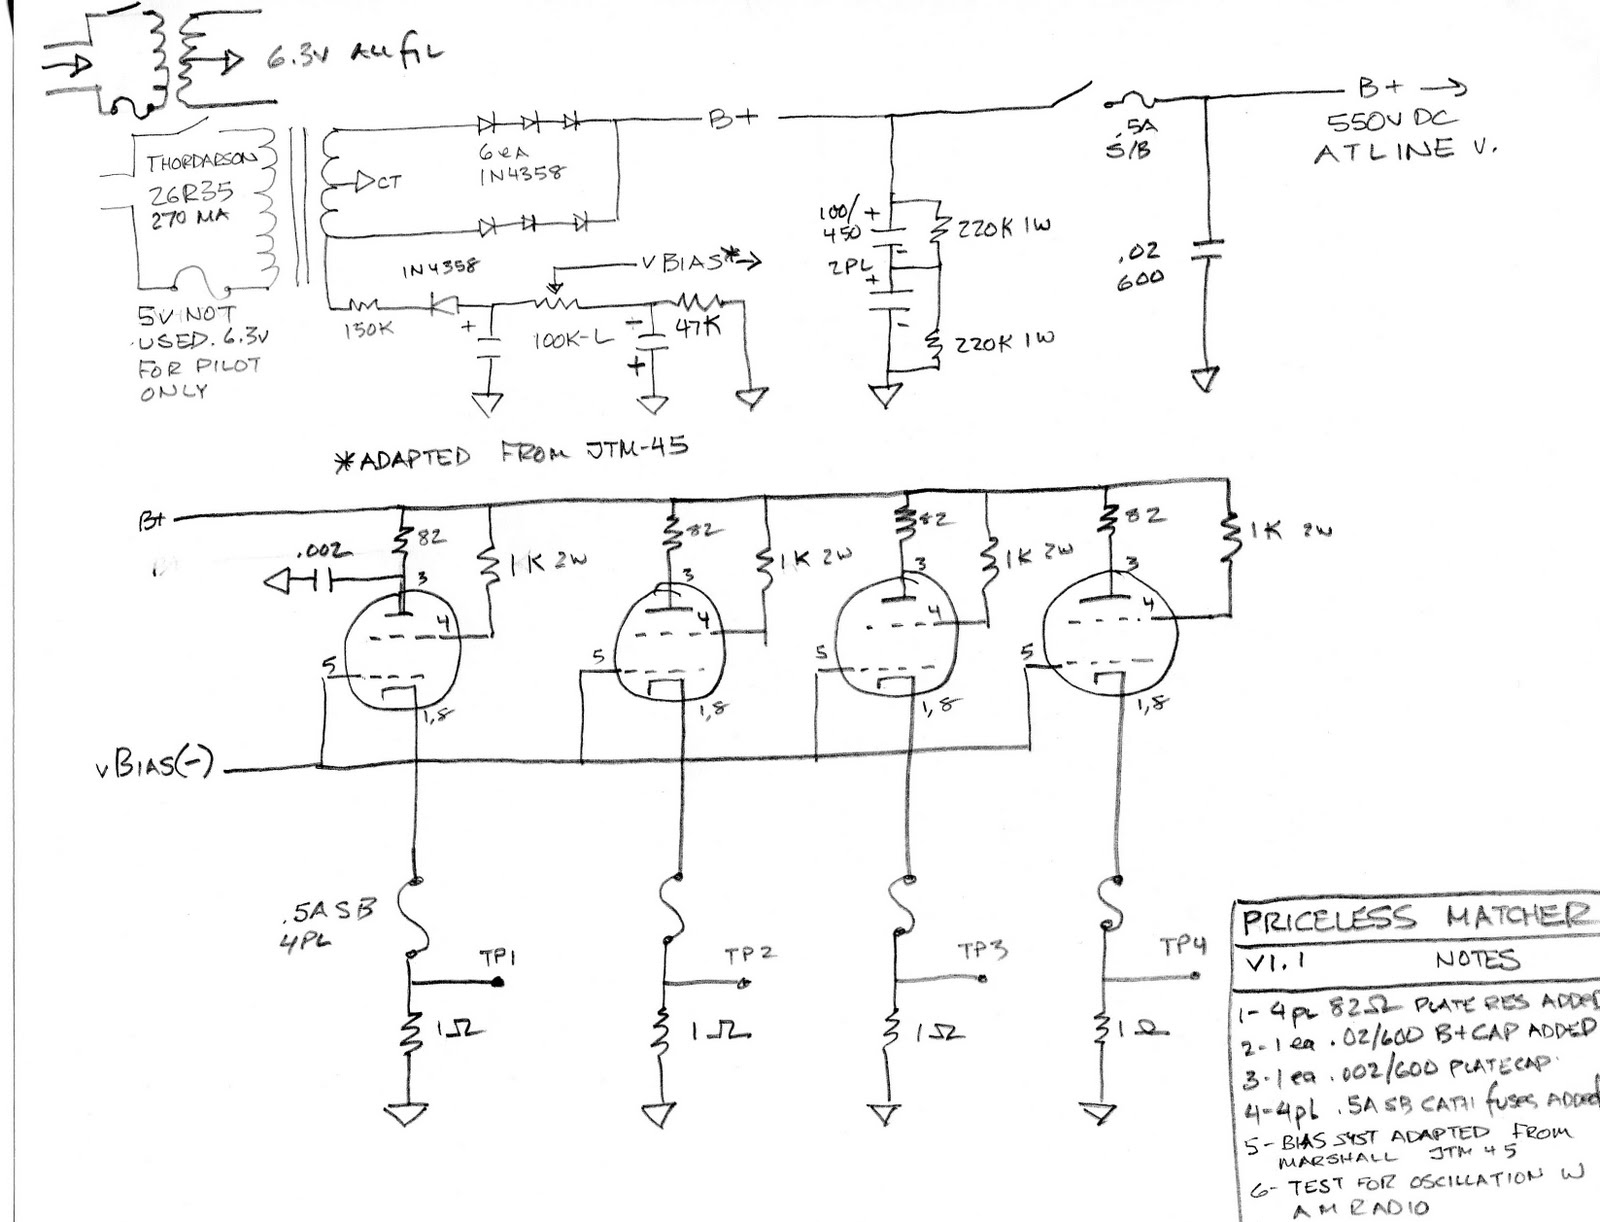 6.3V ALL fIL
THORDARSON
26R35
270 MA
5V NOT
USED. 6.3V
FOR PILOT
ONLY
CT
6 eA
1N4358
1N4358
B+
VBIAS*
150K
+
100K-L
-
+
47K
100/
450
2PL
+
-
+
-
220K 1W
220K 1W
.5A
S/B
.02
600
B+
550V DC
AT LINE V.
*ADAPTED FROM JTM-45
B+
.002
82
3
4
5
1,8
1K 2W
82
3
4
5
1,8
1K 2W
82
3
4
5
1,8
1K 2W
82
3
4
5
1,8
1K 2W
VBIAS(-)
.5A SB
4PL
TP1
TP2
TP3
TP4
1Ω
1Ω
1Ω
1Ω
PRICELESS MATCHER
V1.1 NOTES
1- 4pL 82Ω PLATE RES ADDED
2- 1 ea .02/600 B+ CAP ADDED
3- 1 ea .002/600 PLATE CAP
4- 4pL .5A SB CATH fuses ADDED
5- BIAS SYST ADAPTED FROM
MARSHALL JTM 45
6- TEST FOR OSCILLATION W
AM RADIO